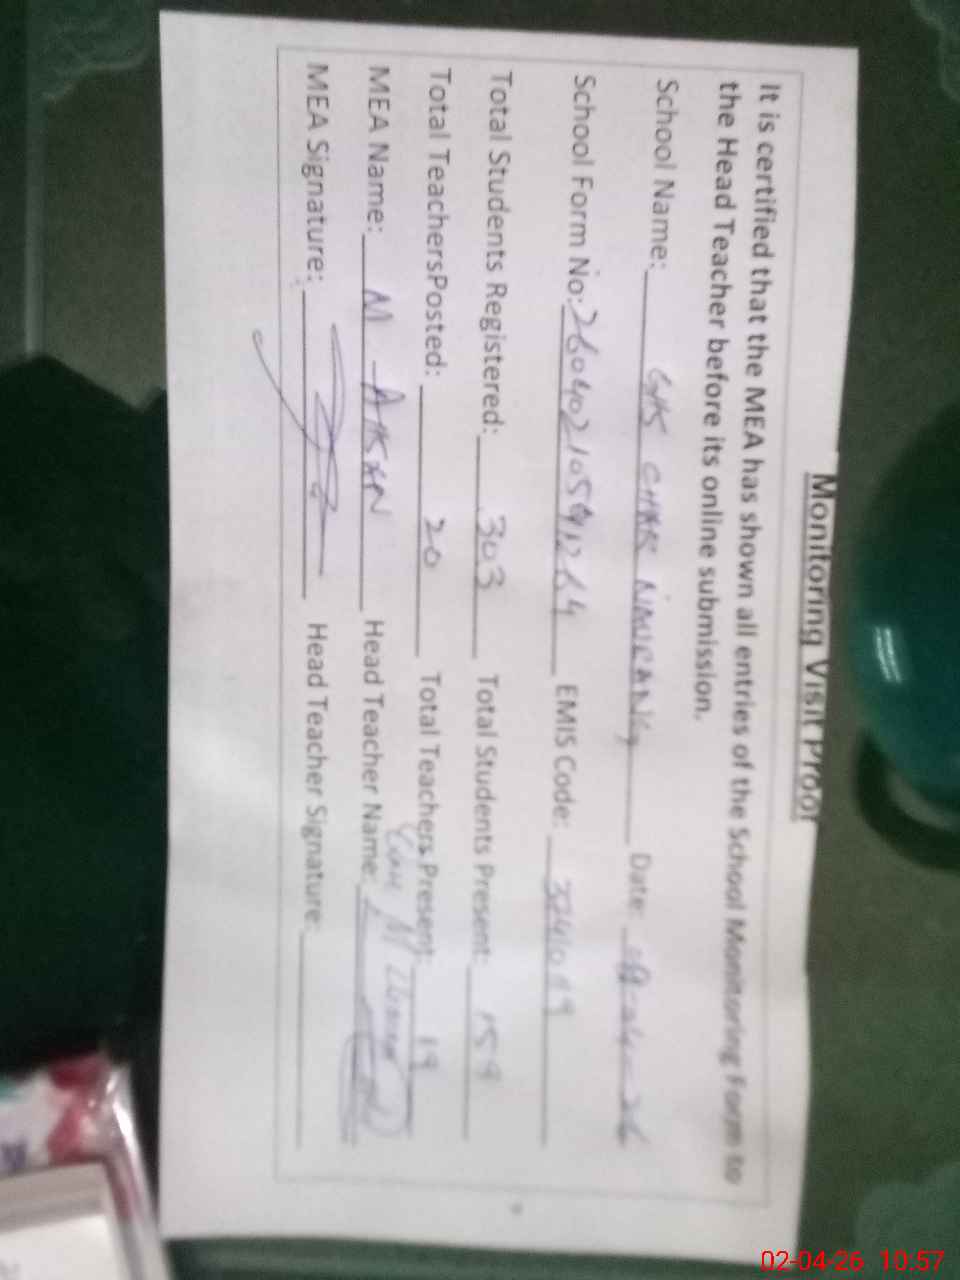 Monitoring Visit Proof
It is certified that the MEA has shown all entries of the School Monitoring Form to
the Head Teacher before its online submission.
School Name: GHS CHAK Date:
School Form No: EMIS Code:
Total Students Registered: 303 Total Students Present: 159
Total TeachersPosted: 20 Total Teachers Present: 19
MEA Name: M AHSAN Head Teacher Name:
MEA Signature: Head Teacher Signature:
02-04-26 10:57